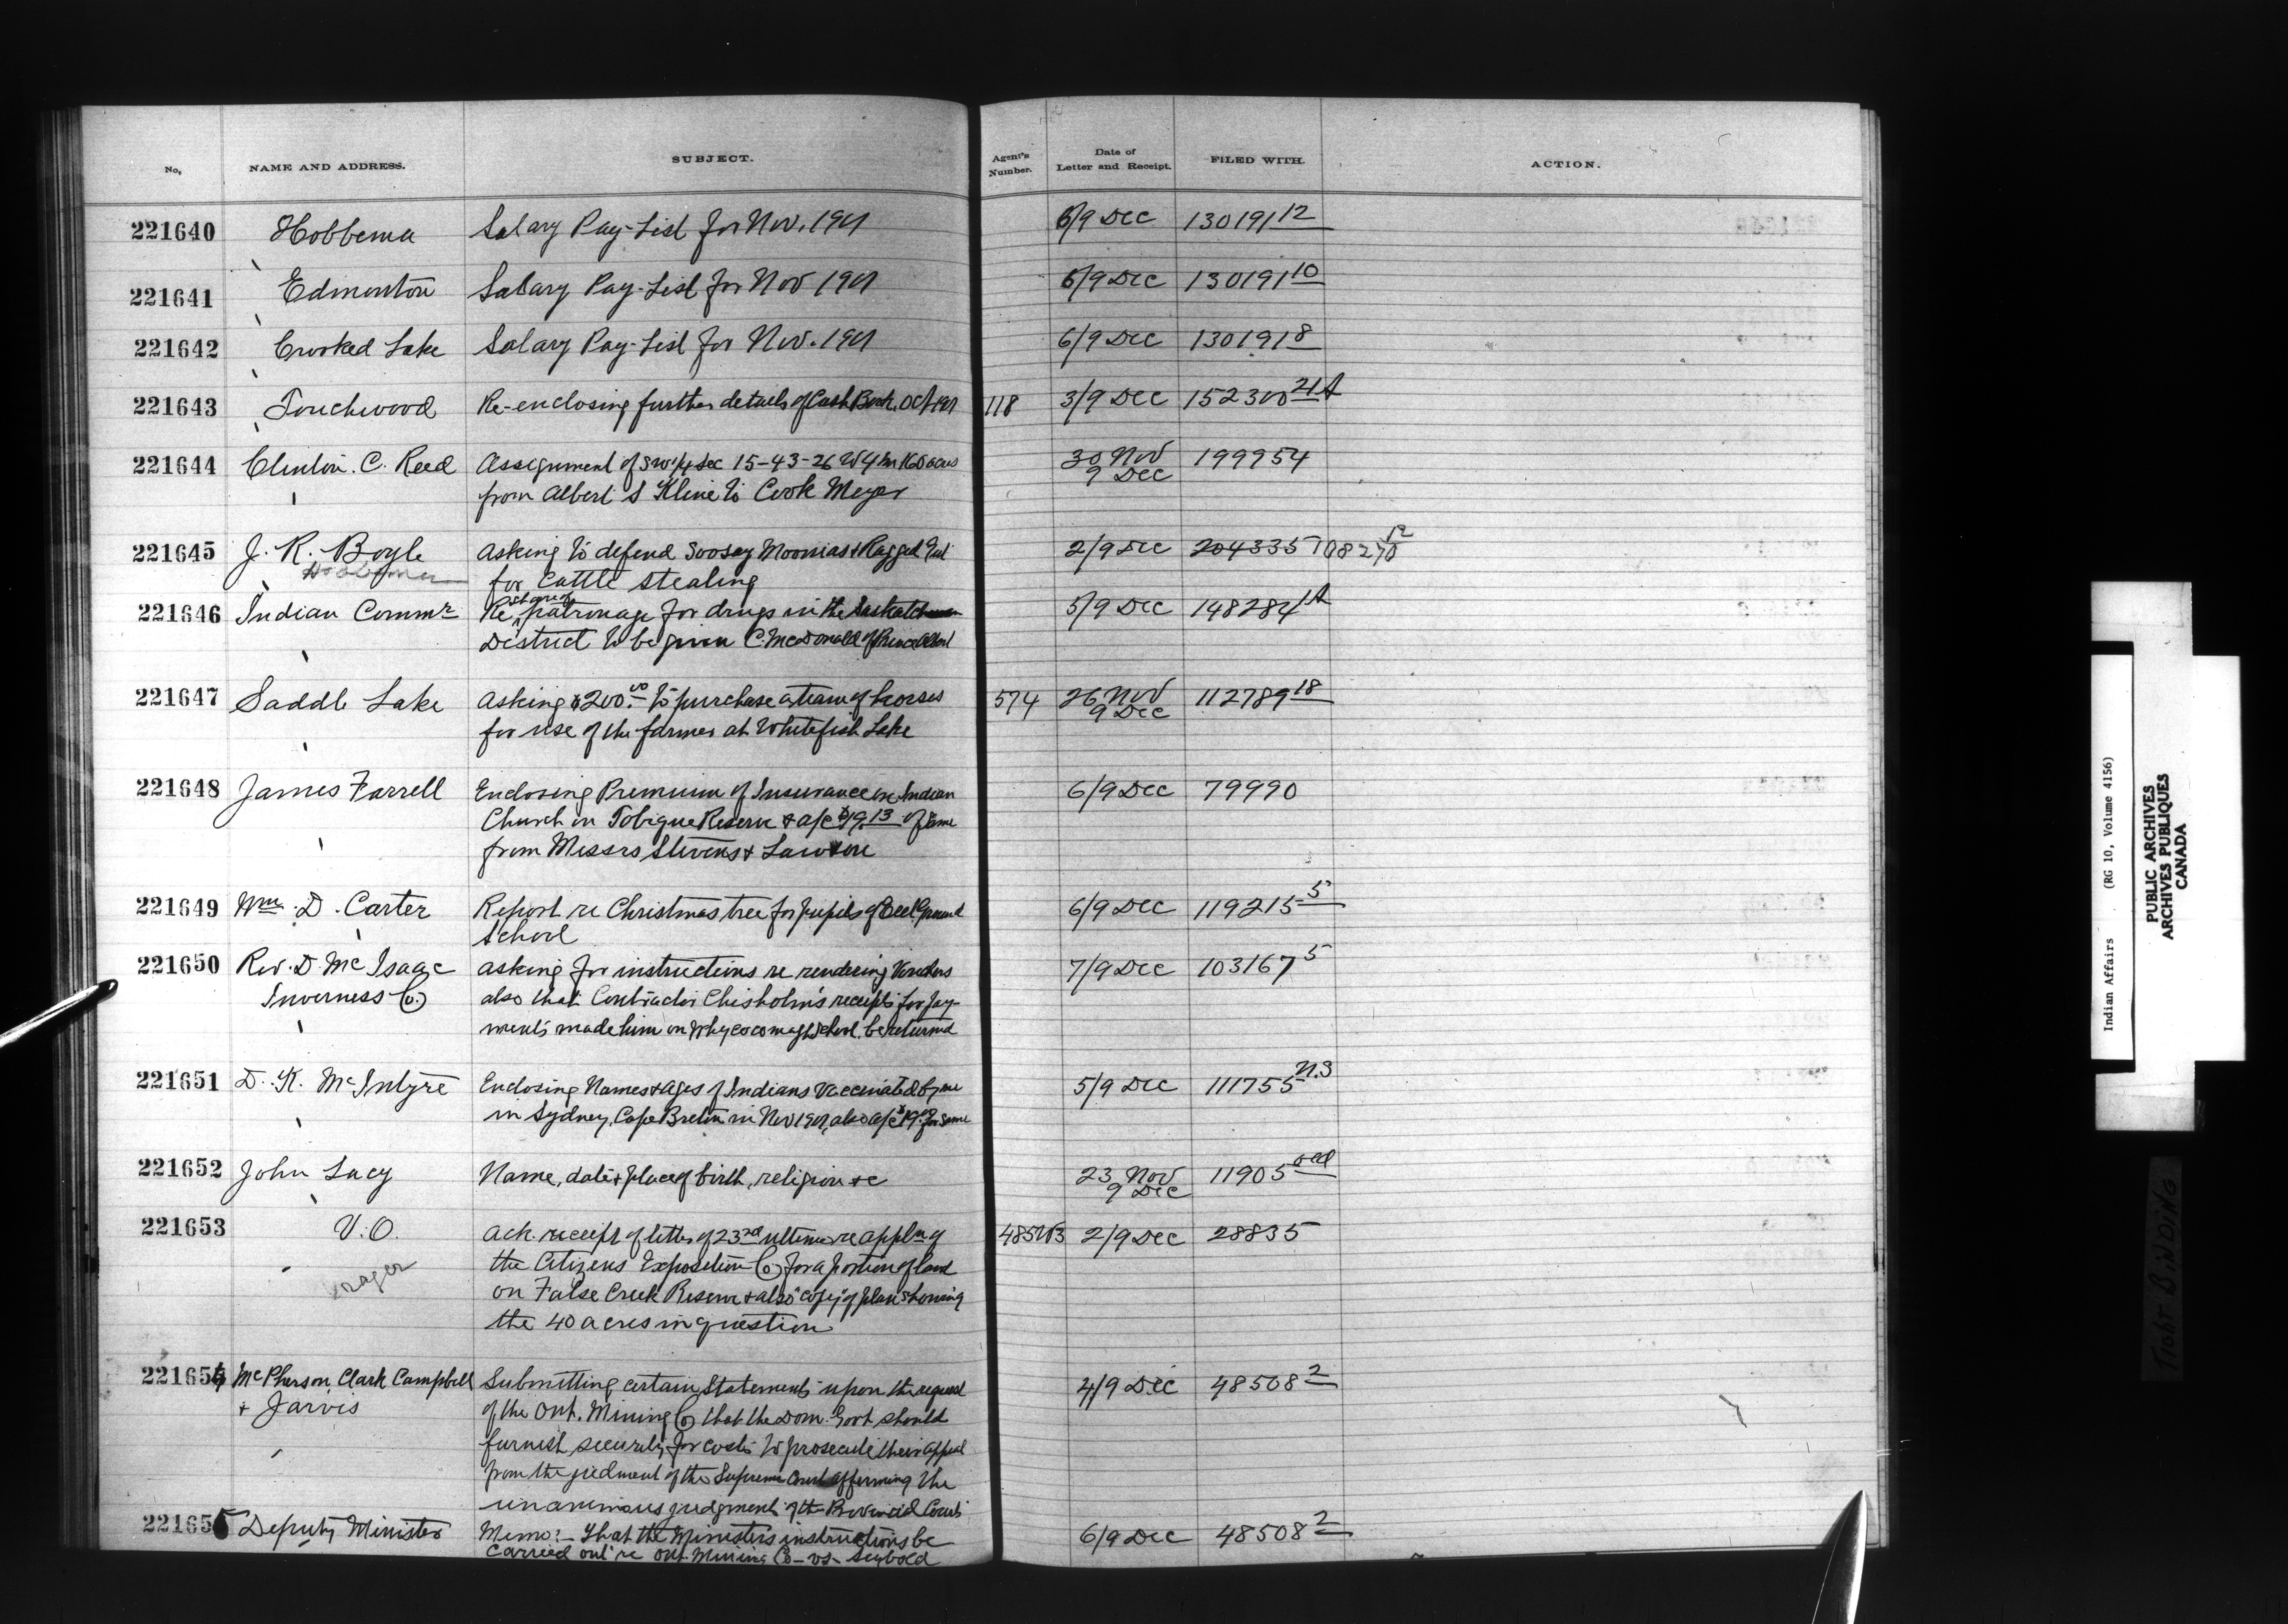 No. NAME AND ADDRESS. SUBJECT. Agent's Number. Date of Letter and Receipt. FILED WITH. ACTION.
221640 Hobbema Salary Pay-List for Nov. 1901 6/9 Dec 130191 12
221641 Edmonton Salary Pay-List for Nov 1901 6/9 Dec 130191 10
221642 Crooked Lake Salary Pay-List for Nov. 1901 6/9 Dec 130191 8
221643 Touchwood Re-enclosing further details of Cash Book, Oct 1901 118 3/9 Dec 152300 21A
221644 Clinton. C. Reed Assignment of SW 1/4 Sec 15-43-26 W4 160 acres 30 Nov 199954
from Albert S Kline to Cook Meyer 9 Dec
221645 J. R. Boyle Asking to defend Soosay Moonias & Ragged 2/9 Dec 204335 12
Hobbema for Cattle Stealing
221646 Indian Commr Re share of patronage for drugs in the Saskatchewan 5/9 Dec 148284 1A
District to be given C. McDonald of Prince Albert
221647 Saddle Lake Asking $200.00 to purchase a team of horses 574 26 Nov 112789 18
for use of the farmer at Whitefish Lake 9 Dec
221648 James Farrell Enclosing Premium of Insurance on Indian 6/9 Dec 79990
Church on Tobique Reserve & a/c $19.13 of same
from Messrs Stevens & Lawson
221649 Wm. D. Carter Report re Christmas tree for pupils of Eel Ground 6/9 Dec 119215 5
School
221650 Rev. D. McIsaac asking for instructions re rendering Vouchers 7/9 Dec 103167 5
Inverness Co. also that Contractor Chisholm's receipts for pay-
ments made him on Whycocomagh School, be returned
221651 D. K. McIntyre Enclosing Names & ages of Indians Vaccinated by me 5/9 Dec 111755 N.S
in Sydney, Cape Breton in Nov 1901, also a/c $19. for same
221652 John Lacy Name, date & place of birth, religion &c 23 Nov 11905
9 Dec
221653 V.O. Ack. receipt of letter of 23rd ultimo re appln of 485 2/9 Dec 28835
the Citizens Exposition Co. for a portion of land
on False Creek Reserve & also "copy" of plan showing
the 40 acres in question
221654 McPherson, Clark Campbell Submitting certain Statements upon the request 4/9 Dec 48508 2
& Jarvis of the Ont. Mining Co that the Dom. Govt should
furnish security for costs to prosecute their appeal
from the judment of the Supreme Court affirming the
unanimous judgment of the Provincial Courts
221655 Deputy Minister Memo:- That the Ministers instructions be 6/9 Dec 48508 2
carried out re Ont. Mining Co - vs - Seybold
Indian Affairs (RG 10, Volume 4156)
PUBLIC ARCHIVES
ARCHIVES PUBLIQUES
CANADA
TIGHT BINDING